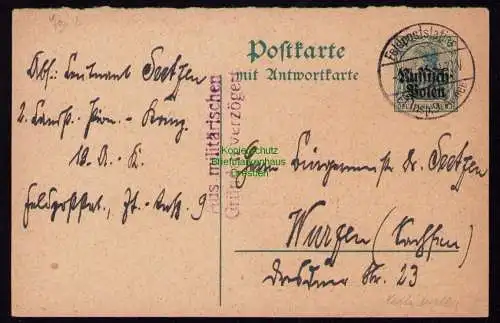 Postkarte
mit Antwortkarte
Feldpoststation
Russisch-
Polen
Abs: Leutnant Seetzen
2. Landst. Pion. - Komp.
10. A. K.
Feldpost
9
aus militärischen
Gründen verzögert
Kopierschutz
Briefmarkenhaus
Herrn Bürgermeister Dr. Seetzen
Wurzen (Sachsen)
Dresdner Str. 23